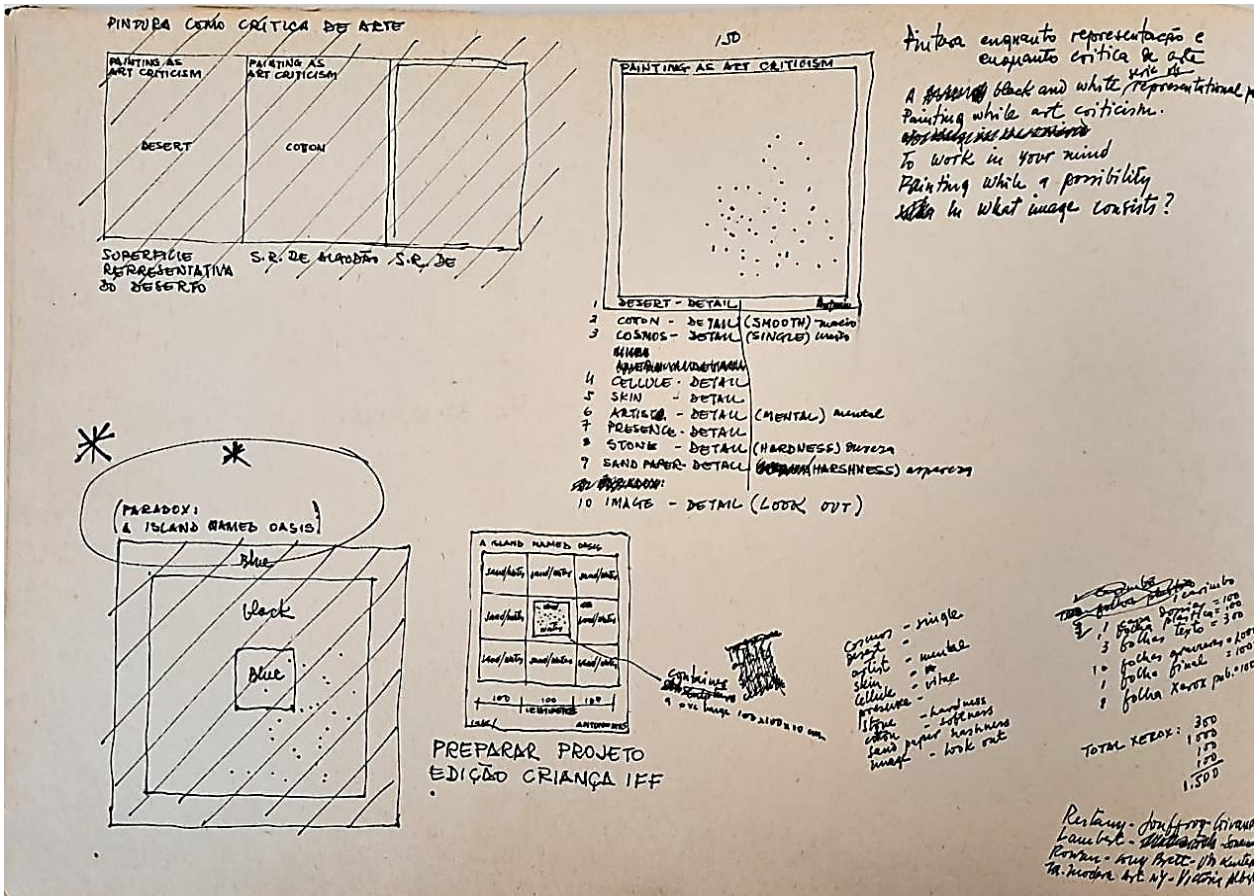 PINTURA COMO CRÍTICA DE ARTE
PAINTING AS
ART CRITICISM
PAINTING AS
ART CRITICISM
DESERT
COTON
SUPERFÍCIE
REPRESENTATIVA
DO DESERTO
S.R. DE ALGODÃO
S.R. DE
150
PAINTING AS ART CRITICISM
1 DESERT - DETAIL
2 COTON - DETAIL (SMOOTH) macio
3 COSMOS - DETAIL (SINGLE)
4 CELLULE - DETAIL
5 SKIN - DETAIL
6 ARTIST - DETAIL (MENTAL) mental
7 PRESENCE - DETAIL
8 STONE - DETAIL (HARDNESS) dureza
9 SAND PAPER - DETAIL (HARSHNESS) aspereza
10 IMAGE - DETAIL (LOOK OUT)
Pintura enquanto representação e
enquanto crítica de arte
A black and white serie of representational
Painting while art criticism.
To work in your mind
Painting while a possibility
In what image consists?
(PARADOX:
A ISLAND NAMED OASIS)
Blue
black
Blue
A ISLAND NAMED OASIS
sand/water sand/water sand/water
sand/water sand water sand/water
sand/water sand/water sand/water
100 100 100
CENTIMETRES
ANTONIO DIAS
container
100x100x10 cm
PREPARAR PROJETO
EDIÇÃO CRIANÇA IFF
cosmos - single
desert -
artist - mental
skin -
cellule - vital
presence -
stone - hardness
coton - softness
sand paper harshness
image - look out
1 folha plástica = 100
3 folhas texto = 300
10 folhas gravuras = 1000
1 folha final = 100
1 folha xerox pub. = 100
TOTAL XEROX:
300
1000
100
100
1.500
Restany - Jouffroy
Lambert -
Rowan - Guy Brett -
M. modern Art NY - Victoria